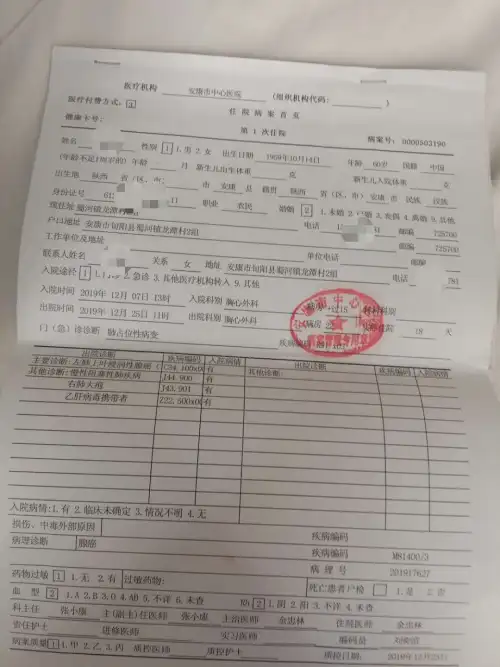 医疗机构 安康市中心医院 (组织机构代码: )
医疗付费方式: 3 住院病案首页
健康卡号: 第 1 次住院 病案号: 0000503190
姓名 性别 1 1.男 2.女 出生日期 1959年10月14日 年龄 60岁 国籍 中国
(年龄不足1周岁的) 年龄 月 新生儿出生体重 克 新生儿入院体重 克
出生地 陕西 省(区、市) 市 安康 县 籍贯 陕西 省(区、市) 安康 市 民族 汉族
身份证号 61 11 职业 农民 婚姻 2 1.未婚 2.已婚 3.丧偶 4.离婚 9.其他
现住址 蜀河镇龙潭村 电话 邮编 725700
户口地址 安康市旬阳县蜀河镇龙潭村2组 邮编 725700
工作单位及地址 单位电话 邮编
联系人姓名 关系 女 地址 安康市旬阳县蜀河镇龙潭村2组 电话 781
入院途径 1 急诊 3.其他医疗机构转入 9.其他
入院时间 2019年 12月 07日 13时 入院科别 胸心外科 转科科别
出院时间 2019年 12月 25日 11时 出院科别 胸心外科 病房 住院 18 天
门(急)诊诊断 肺占位性病变 疾病编码
出院诊断 疾病编码 入院病情 出院诊断 疾病编码 入院病情
主要诊断: 左肺上叶浸润性腺癌 C34.100x0 有 其他诊断:
其他诊断: 慢性阻塞性肺疾病 J44.900 有
右肺大疱 J43.901 有
乙肝病毒携带者 Z22.500x0 有
入院病情: 1.有 2.临床未确定 3.情况不明 4.无
损伤、中毒外部原因 疾病编码
病理诊断 腺癌 疾病编码 M81400/3
病理号 201917627
药物过敏 1 1.无 2.有 过敏药物: 死亡患者尸检 1.是 2.否
血型 2 1.A 2.B 3.O 4.AB 5.不详 6.未查 Rh 2 1.阴 2.阳 3.不详 4.未查
科主任 张小康 主(副主)任医师 张小康 主治医师 金忠林 住院医师 金忠林
责任护士 进修医师 实习医师 编码员
病案质量 1 1.甲 2.乙 3.丙 质控医师 质控护士 质控日期: 2019年12月25日